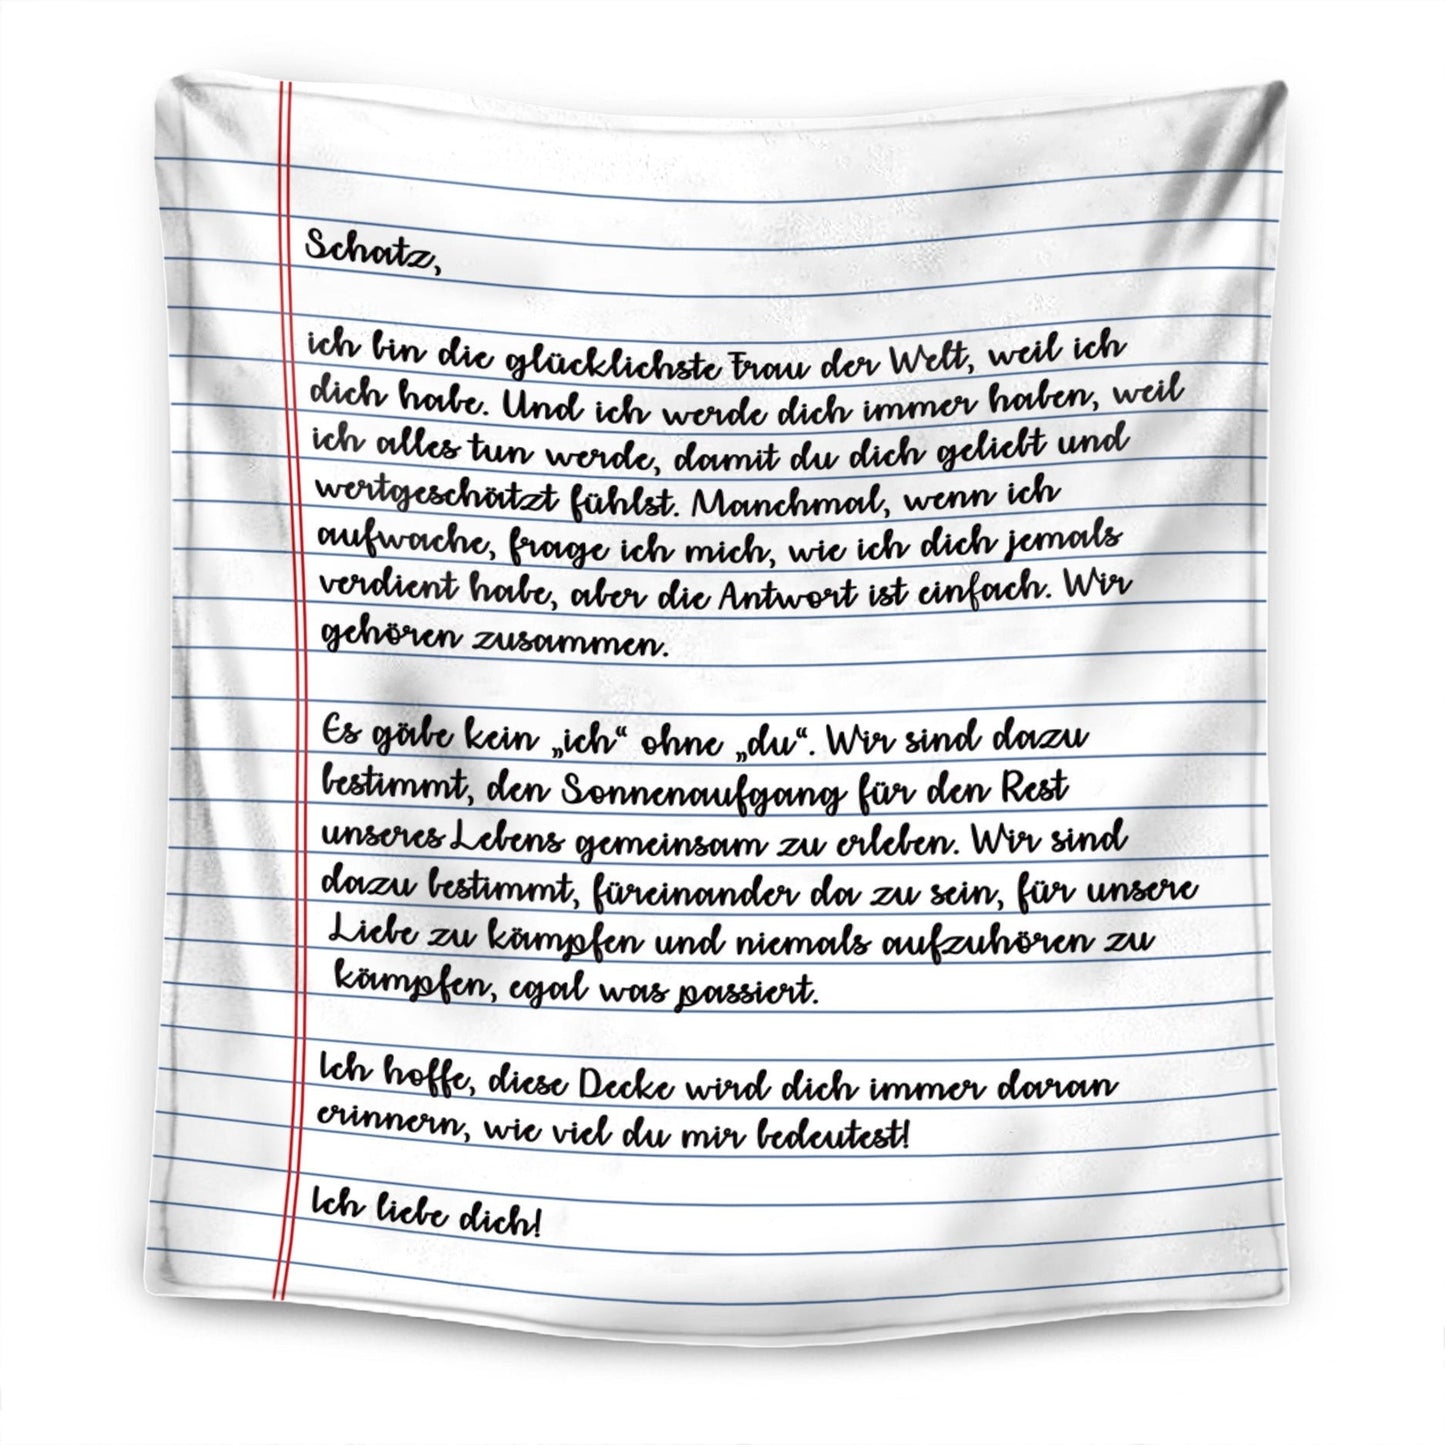 Schatz,
ich bin die glücklichste Frau der Welt, weil ich
dich habe. Und ich werde dich immer haben, weil
ich alles tun werde, damit du dich geliebt und
wertgeschätzt fühlst. Manchmal, wenn ich
aufwache, frage ich mich, wie ich dich jemals
verdient habe, aber die Antwort ist einfach. Wir
gehören zusammen.
Es gäbe kein „ich“ ohne „du“. Wir sind dazu
bestimmt, den Sonnenaufgang für den Rest
unseres Lebens gemeinsam zu erleben. Wir sind
dazu bestimmt, füreinander da zu sein, für unsere
Liebe zu kämpfen und niemals aufzuhören zu
kämpfen, egal was passiert.
Ich hoffe, diese Decke wird dich immer daran
erinnern, wie viel du mir bedeutest!
Ich liebe dich!